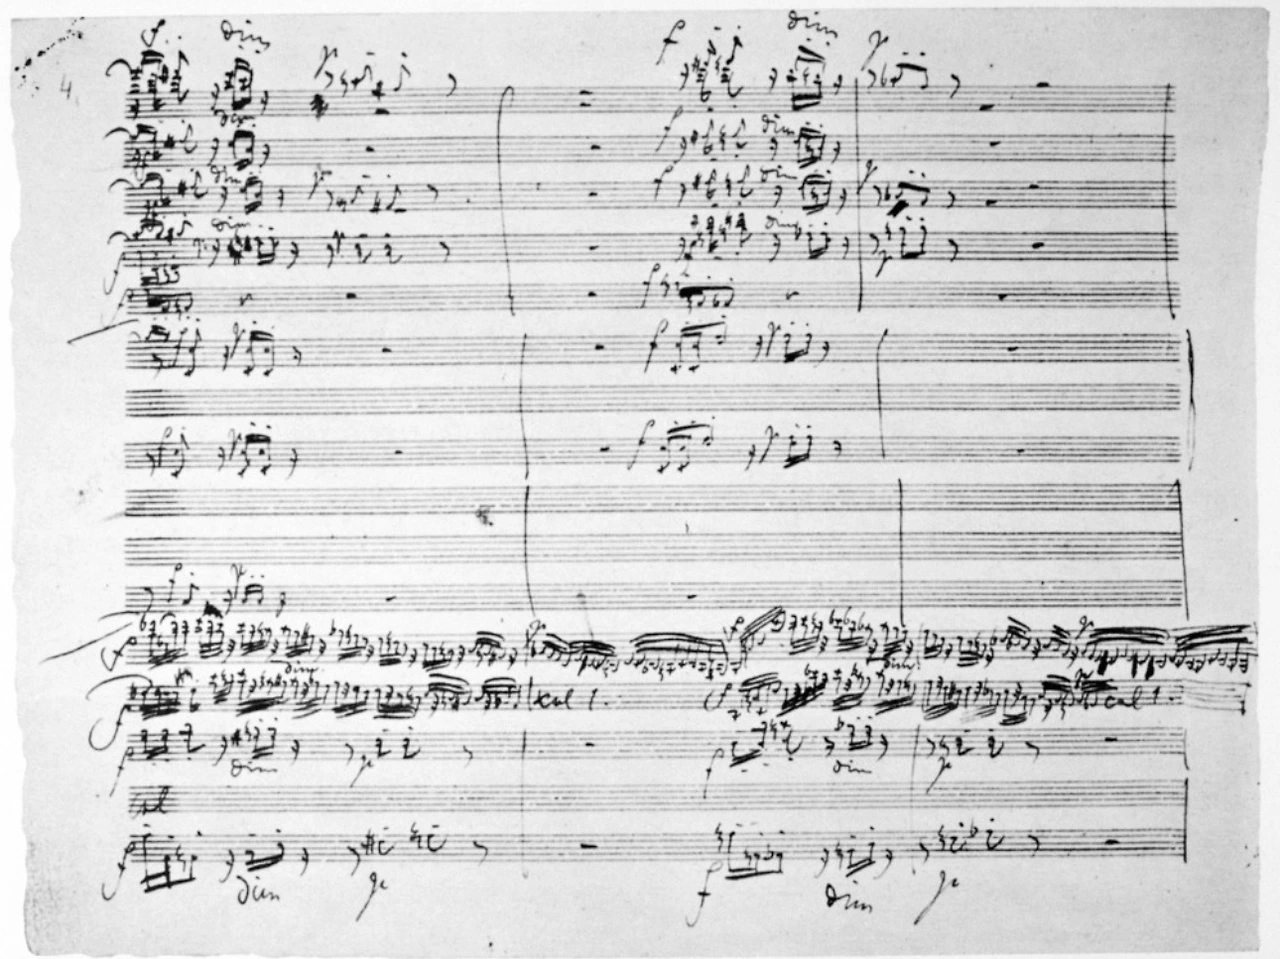 f dim f dim
4. p p
dim f dim
dim f dim p
f dim dim
f f
p f p
f p f p
f p
f p f p
f dim f dim p
col 1. col 1.
f dim p f dim p
col
f dim p f dim p